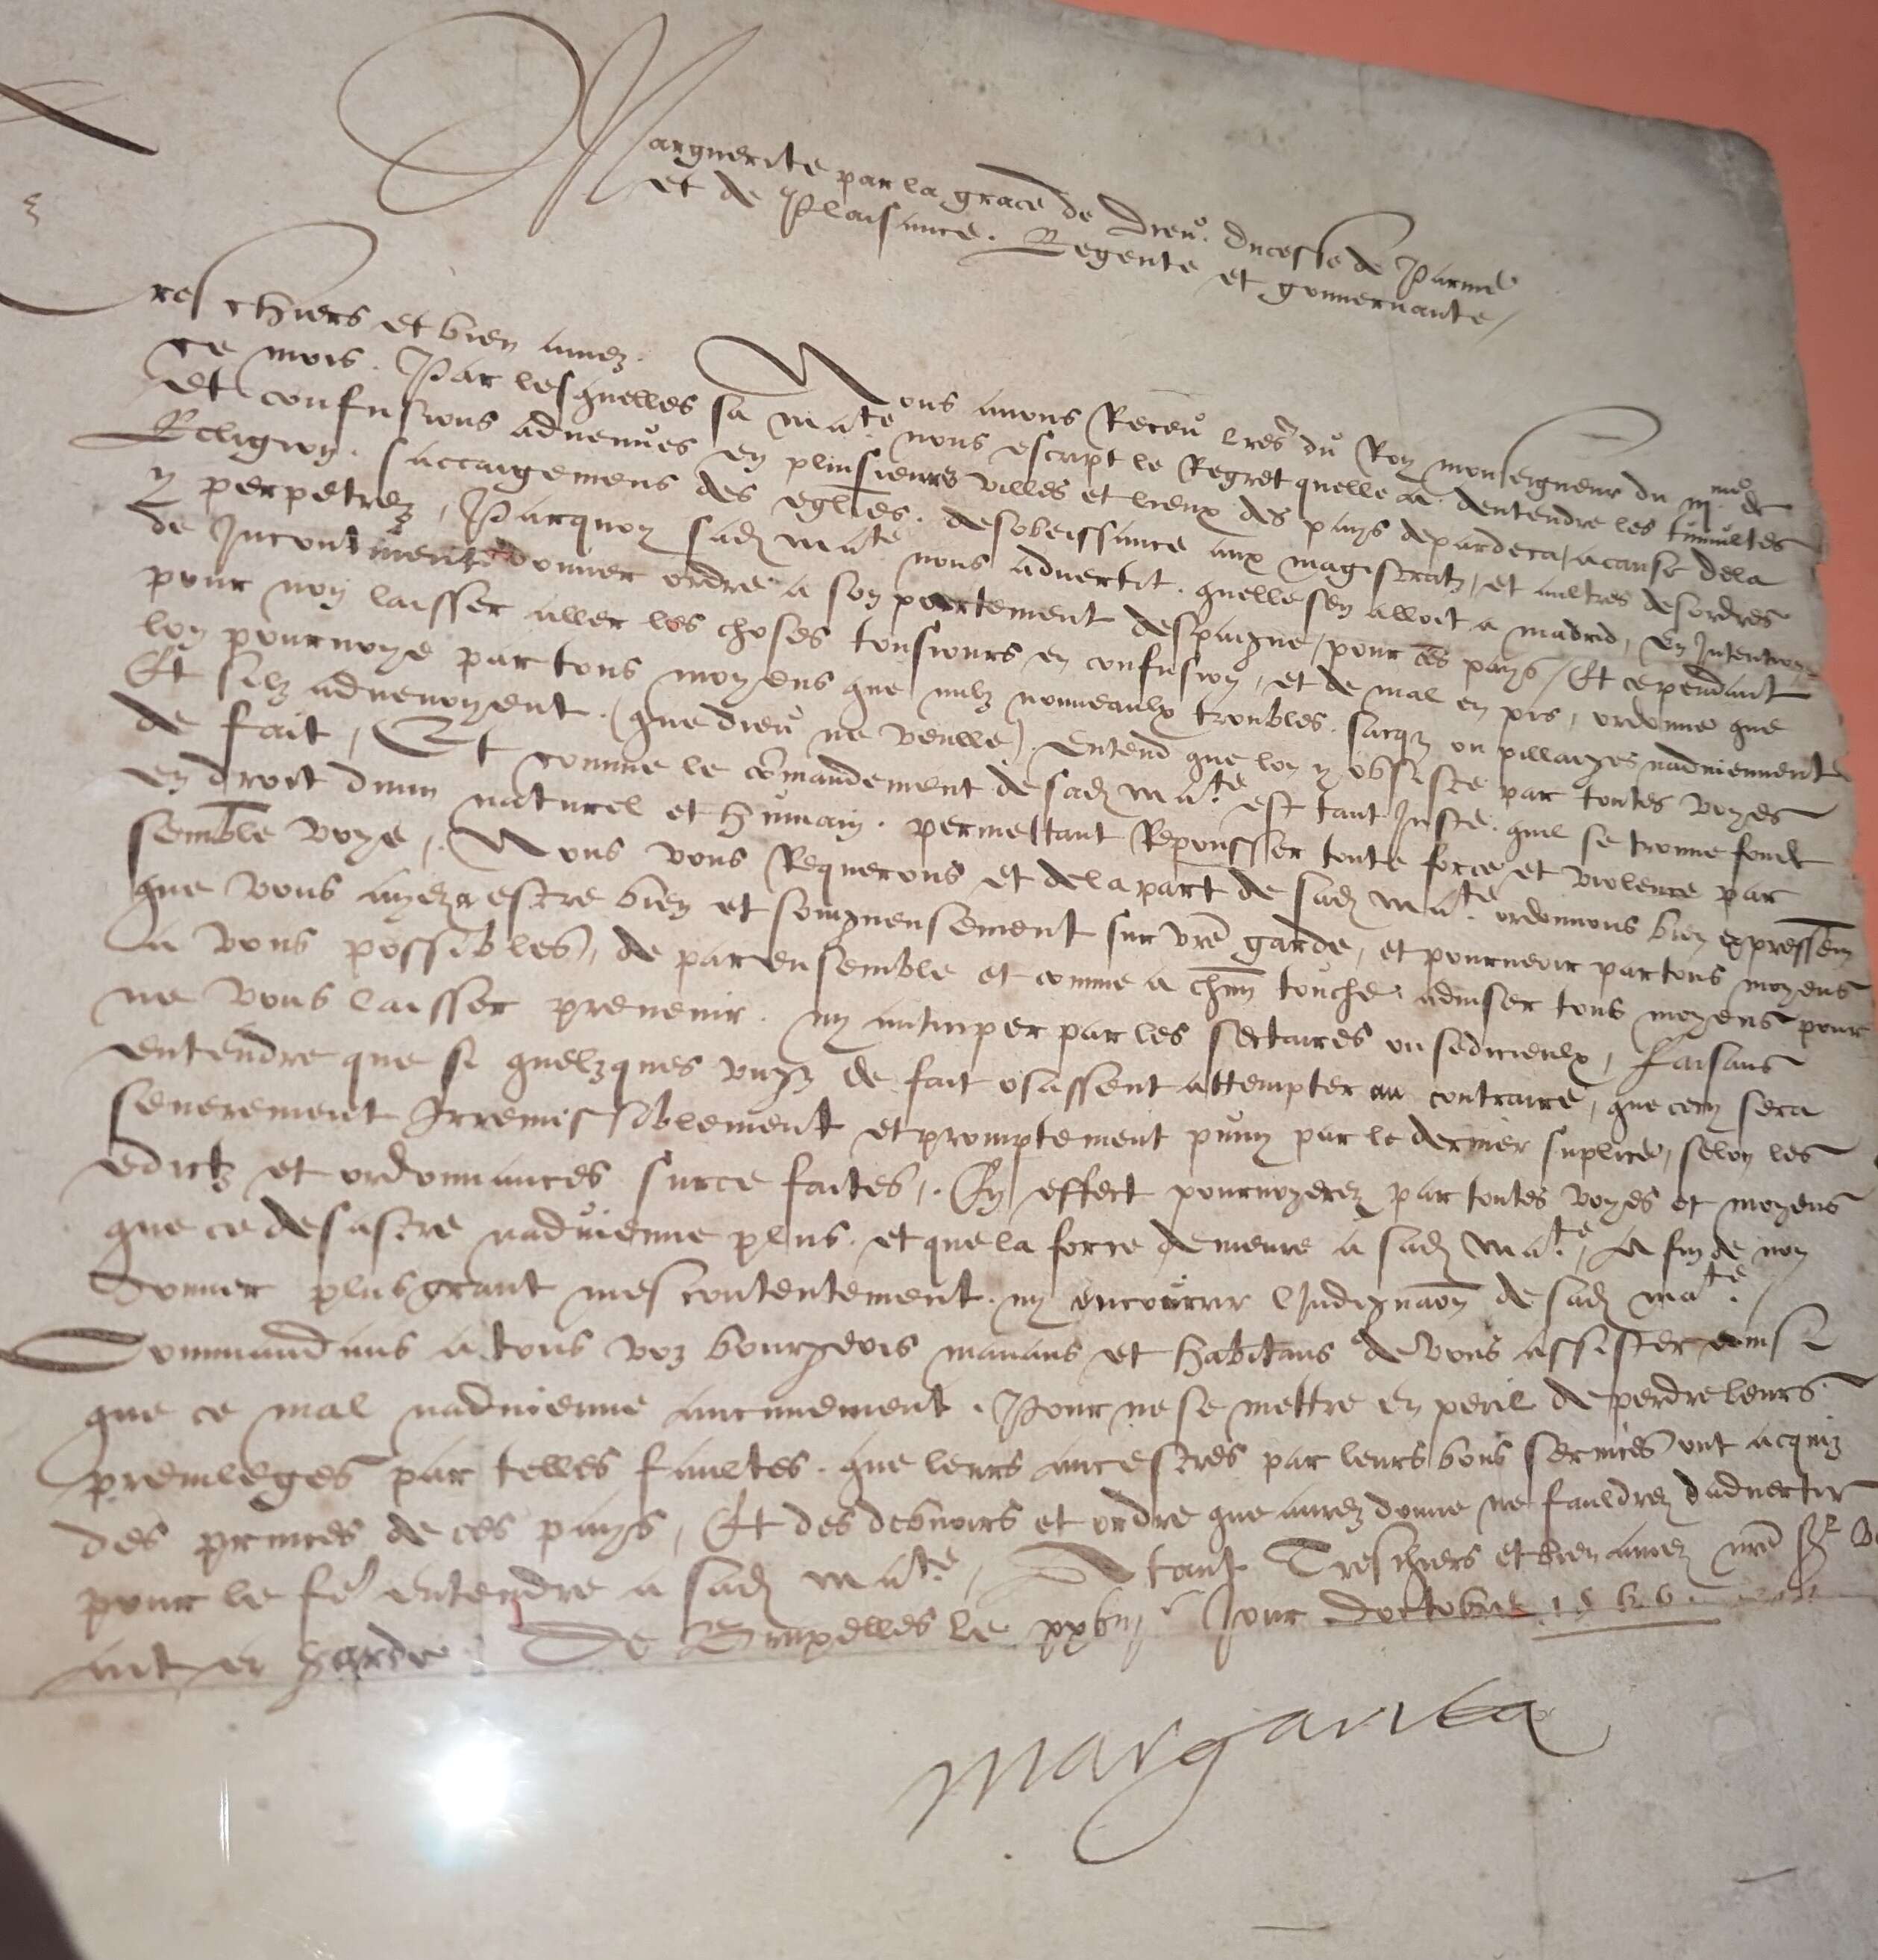 Marguerite par la grace de Dieu. Ducesse de Parme
et de Plaisance. Regente et gouvernante /
Treschiers et bien amez. Nous avons Receu lres du Roy monseigneur du iij^me de
ce mois. Par lesquelles sa Ma^te nous escript le Regret quelle a. dentendre les tumultes
et confusions advenues en plusieurs villes et lieux des pays depardeca, a cause dela
Religion. saccaigemens des eglises. desobeissance aux magistratz, et aultres desordres
y perpetrez, Parquoy sad Ma^te nous advertit. quelle sen alloit a madrid, en Intention
de Incontinent donner ordre a son partement despaigne, pour ces pays / Et cependant
pour non laisser aller les choses tousiours en confusion, et de mal en pis, ordonne que
lon pourvoye par tous moyens que nulz nouveaulx troubles. sacqz ou pillaiges nadviennent
Et silz advenoyent. (que dieu ne veulle). Entend que lon y obsiste par toutes voyes
de fait, Et comme le comandement de sad Ma^te est tant Juste. quil se trouve fonde
en droit divin naturel et humain. permettant Repousser toute force et violence par
semble voye, Nous vous Requerons et dela part de sad Ma^te ordonnons bien expressem
que vous ayez a estre bien et soingneusement sur vre garde, et pourveoir par tous moyens
a vous possibles, de par ensemble et comme a chun touche adviser tous moyens pour
ne vous laisser prevenir. ny anticiper par les sectaires ou sedicieulx, faisans
entendre que si quelzques ungz de fait osassent attempter au contraire, que ceey sera
severement Irremissiblement et promptement puny par le dernier suplice, selon les
edictz et ordonnances surce faites, En effect pourvoyerez par toutes voyes et moyens
que ce desastre nadvienne plus. et que la force demeure a sad Ma^te, Afin de non
donner plus grant mescontentement. ny encourir lIndignaon de sad Ma^te /
Commandans a tous voz bourgeois manans et habitans de vous assister ainsi
que ce mal nadvienne aucunement. Pour ne se mettre en peril de perdre leurs
previleges par telles faultes. que leurs ancestres par leurs bons services ont acquiz
des princes de ces pays, Et des debvoirs et ordre que aurez donne ne fauldrez dadvertir
pour le fe entendre a sad Ma^te, Atant Treschiers et bien amez nre Sr
ait en garde. De Bruxelles le xxbiij^e Jour Doctobre 1566.
Margarita